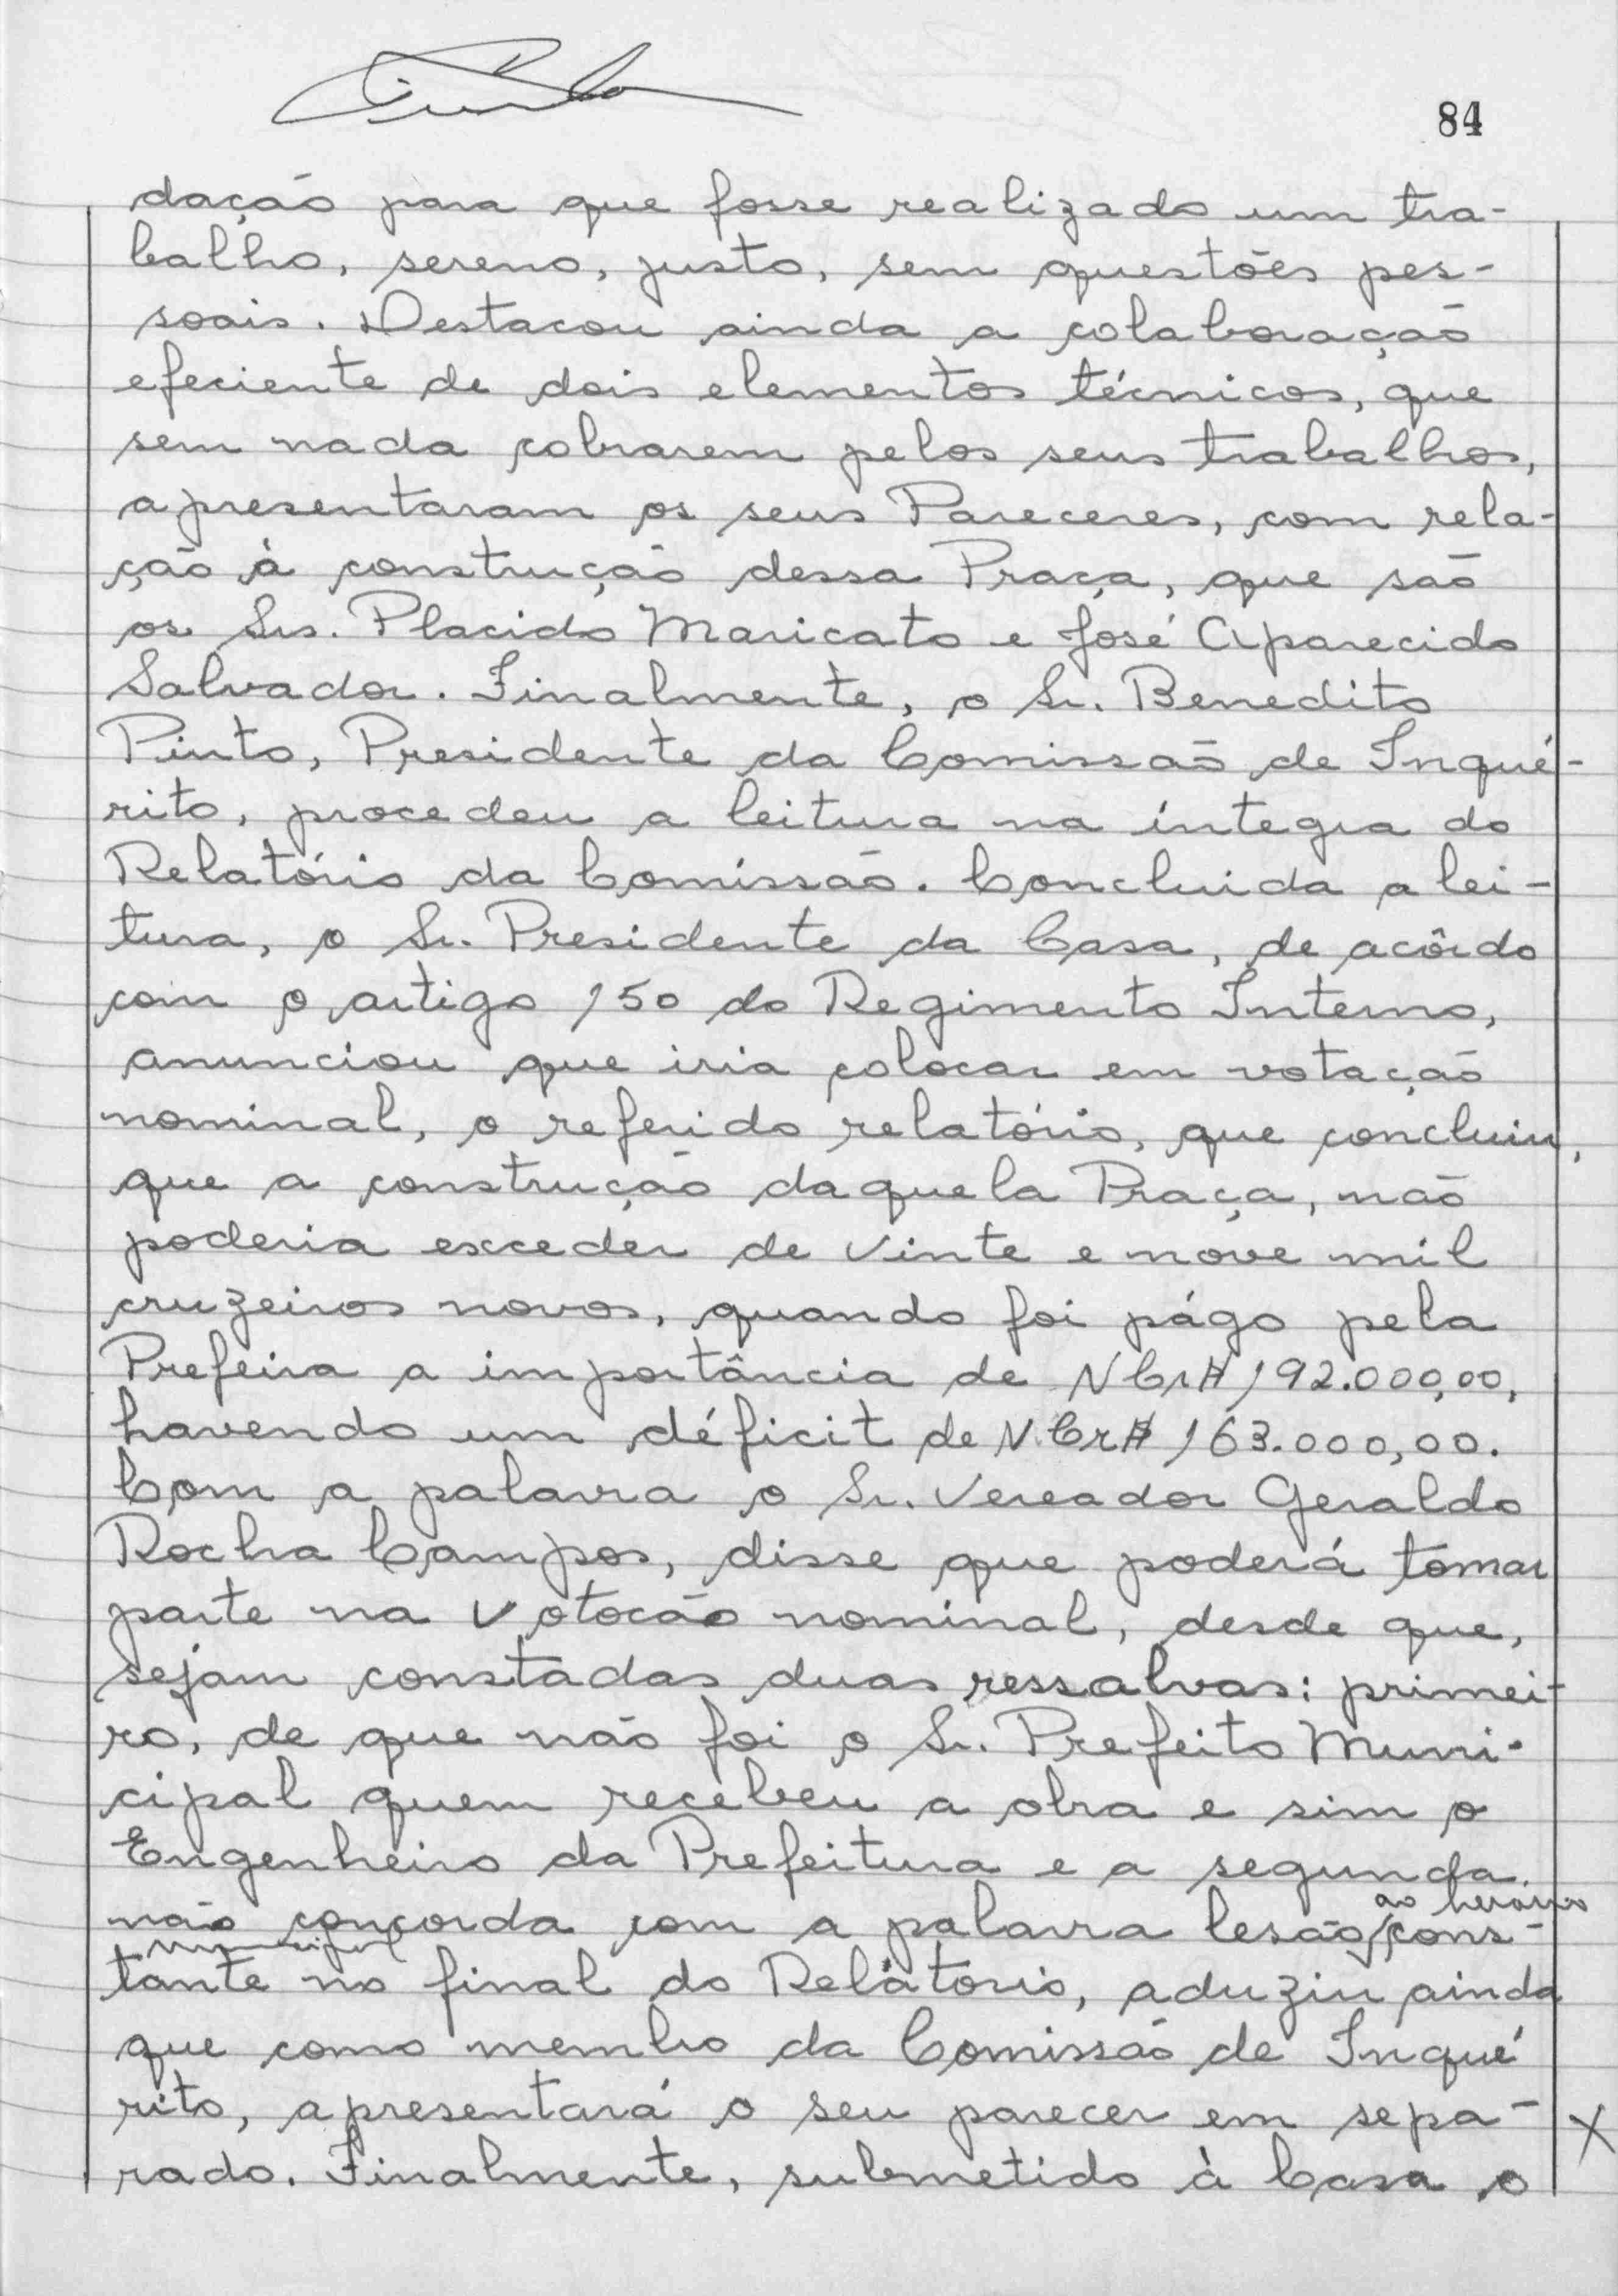 84
dação para que fosse realizado um tra-
balho, sereno, justo, sem questões pes-
soais. Destacou ainda a colaboração
efeciente de dois elementos técnicos, que
sem nada cobrarem pelos seus trabalhos,
apresentaram os seus Pareceres, com rela-
ção à construção dessa Praça, que são
os Srs. Placido Maricato e José Aparecido
Salvador. Finalmente, o Sr. Benedito
Pinto, Presidente da Comissão de Inqué-
rito, procedeu a leitura na íntegra do
Relatório da Comissão. Concluida a lei-
tura, o Sr. Presidente da Casa, de acôrdo
com o artigo 150 do Regimento Interno,
anunciou que iria colocar em votação
nominal, o referido relatório, que concluiu,
que a construção daquela Praça, não
poderia exceder de vinte e nove mil
cruzeiros novos, quando foi págo pela
Prefeira a importância de NCr$ 192.000,00,
havendo um déficit de NCr$ 163.000,00.
Com a palavra o Sr. Vereador Geraldo
Rocha Campos, disse que poderá tomar
parte na votocão nominal, desde que,
sejam constadas duas ressalvas: primei-
ro, de que não foi o Sr. Prefeito Muni-
cipal quem recebeu a obra e sim o
Engenheiro da Prefeitura e a segunda
ao herário
não concorda com a palavra lesão cons-
municipal
tante no final do Relátorio, aduziu ainda
que como membro da Comissão de Inqué
rito, apresentará o seu parecer em sepa-
rado. Finalmente, submetido à Casa o
X